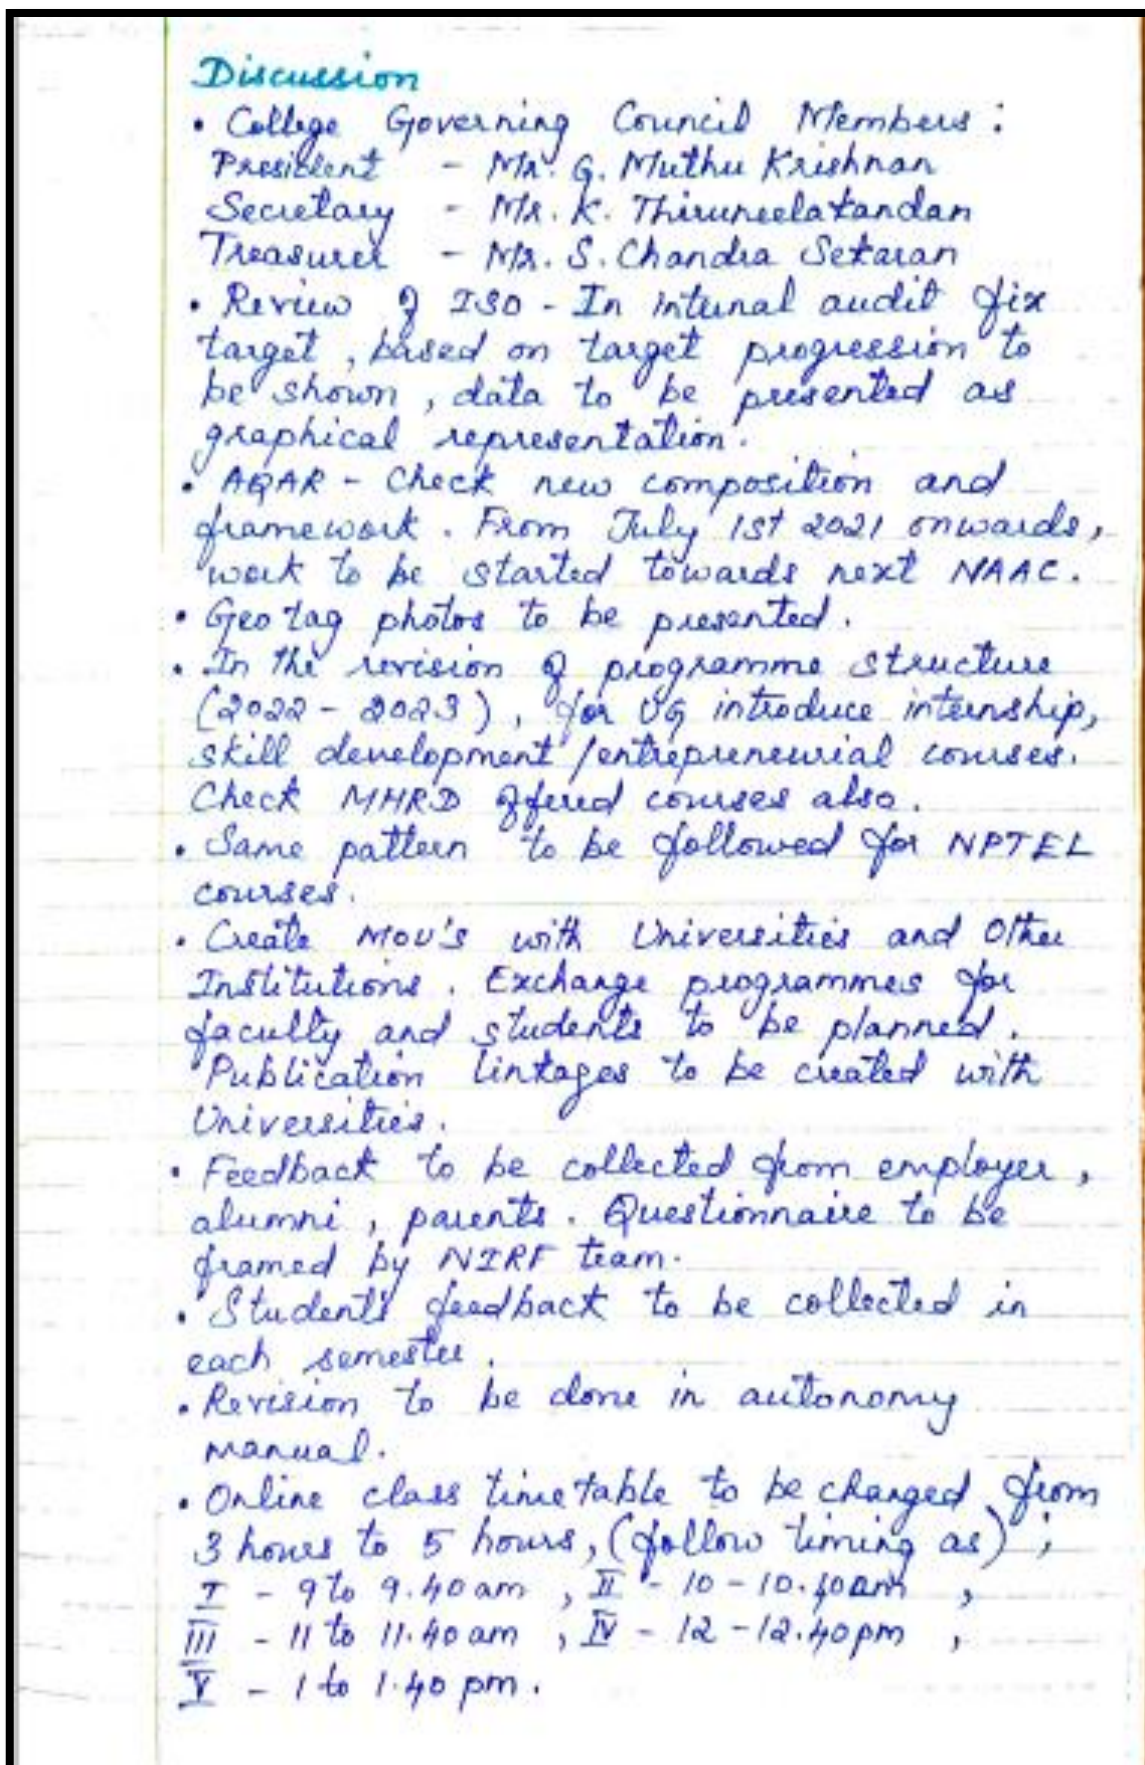 Discussion
• College Governing Council Members :
President - Mr. G. Muthu Krishnan
Secretary - Mr. K. Thiruneelakandan
Treasurer - Mr. S. Chandra Sekaran
• Review of ISO - In internal audit fix
target, based on target progression to
be shown, data to be presented as
graphical representation.
• AQAR - Check new composition and
framework. From July 1st 2021 onwards,
work to be started towards next NAAC.
• Geo tag photos to be presented.
• In the revision of programme structure
(2022 - 2023), for UG introduce internship,
skill development /entrepreneurial courses.
Check MHRD offered courses also.
• Same pattern to be followed for NPTEL
courses.
• Create MOU's with Universities and Other
Institutions. Exchange programmes for
faculty and students to be planned.
Publication linkages to be created with
Universities.
• Feedback to be collected from employer,
alumni, parents. Questionnaire to be
framed by NIRF team.
• Students feedback to be collected in
each semester.
• Revision to be done in autonomy
manual.
• Online class timetable to be changed from
3 hours to 5 hours, (follow timing as) ;
I - 9 to 9.40 am , II - 10 - 10.40am ,
III - 11 to 11.40 am , IV - 12 - 12.40pm ,
V - 1 to 1.40 pm.